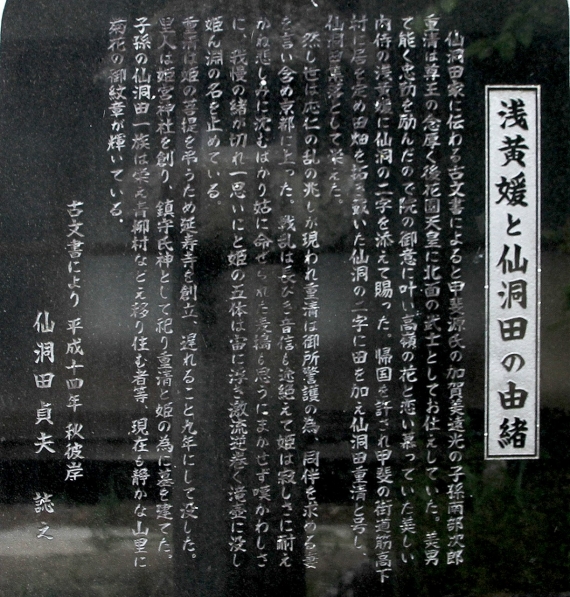 浅黄媛と仙洞田の由緒
仙洞田家に伝わる古文書によると甲斐源氏の加賀美遠光の子孫南部次郎
重清は尊王の念厚く後花園天皇に北面の武士としてお仕えしていた。美男
て能く忠勤を励んだので院の御意に叶い高嶺の花と恋い慕っていた美しい
内侍の浅黄媛に仙洞の二字を添えて賜った。帰国を許され甲斐の街道筋高下
村に居を定め田畑を拓き戴いた仙洞の二字に田を加え仙洞田重清と号し、
仙洞田集落として栄えた。
然し世は応仁の乱の兆しが現われ重清は御所警護の為、同伴を求める妻
を言い含め京都に上った。戦乱は長びき音信も途絶えて姫は寂しさに耐え
かね悲しみに沈むばかり姑に命ぜられた麦搗も思うにまかせず嘆かわしさ
に、我慢の緒が切れ一思いにと姫の五体は宙に浮き激流逆巻く滝壺に没し
姫ん淵の名を止めている。
重清は姫の菩提を弔うため延寿寺を創立、遅れること九年にして没した。
里人は姫宮神社を創り、鎮守氏神として祀り重清と姫の為に墓を建てた。
子孫の仙洞田一族は栄え青柳村などえ移り住む者等、現在も静かな山里に
菊花の御紋章が輝いている。
古文書により 平成十四年 秋彼岸
仙洞田貞夫 誌之